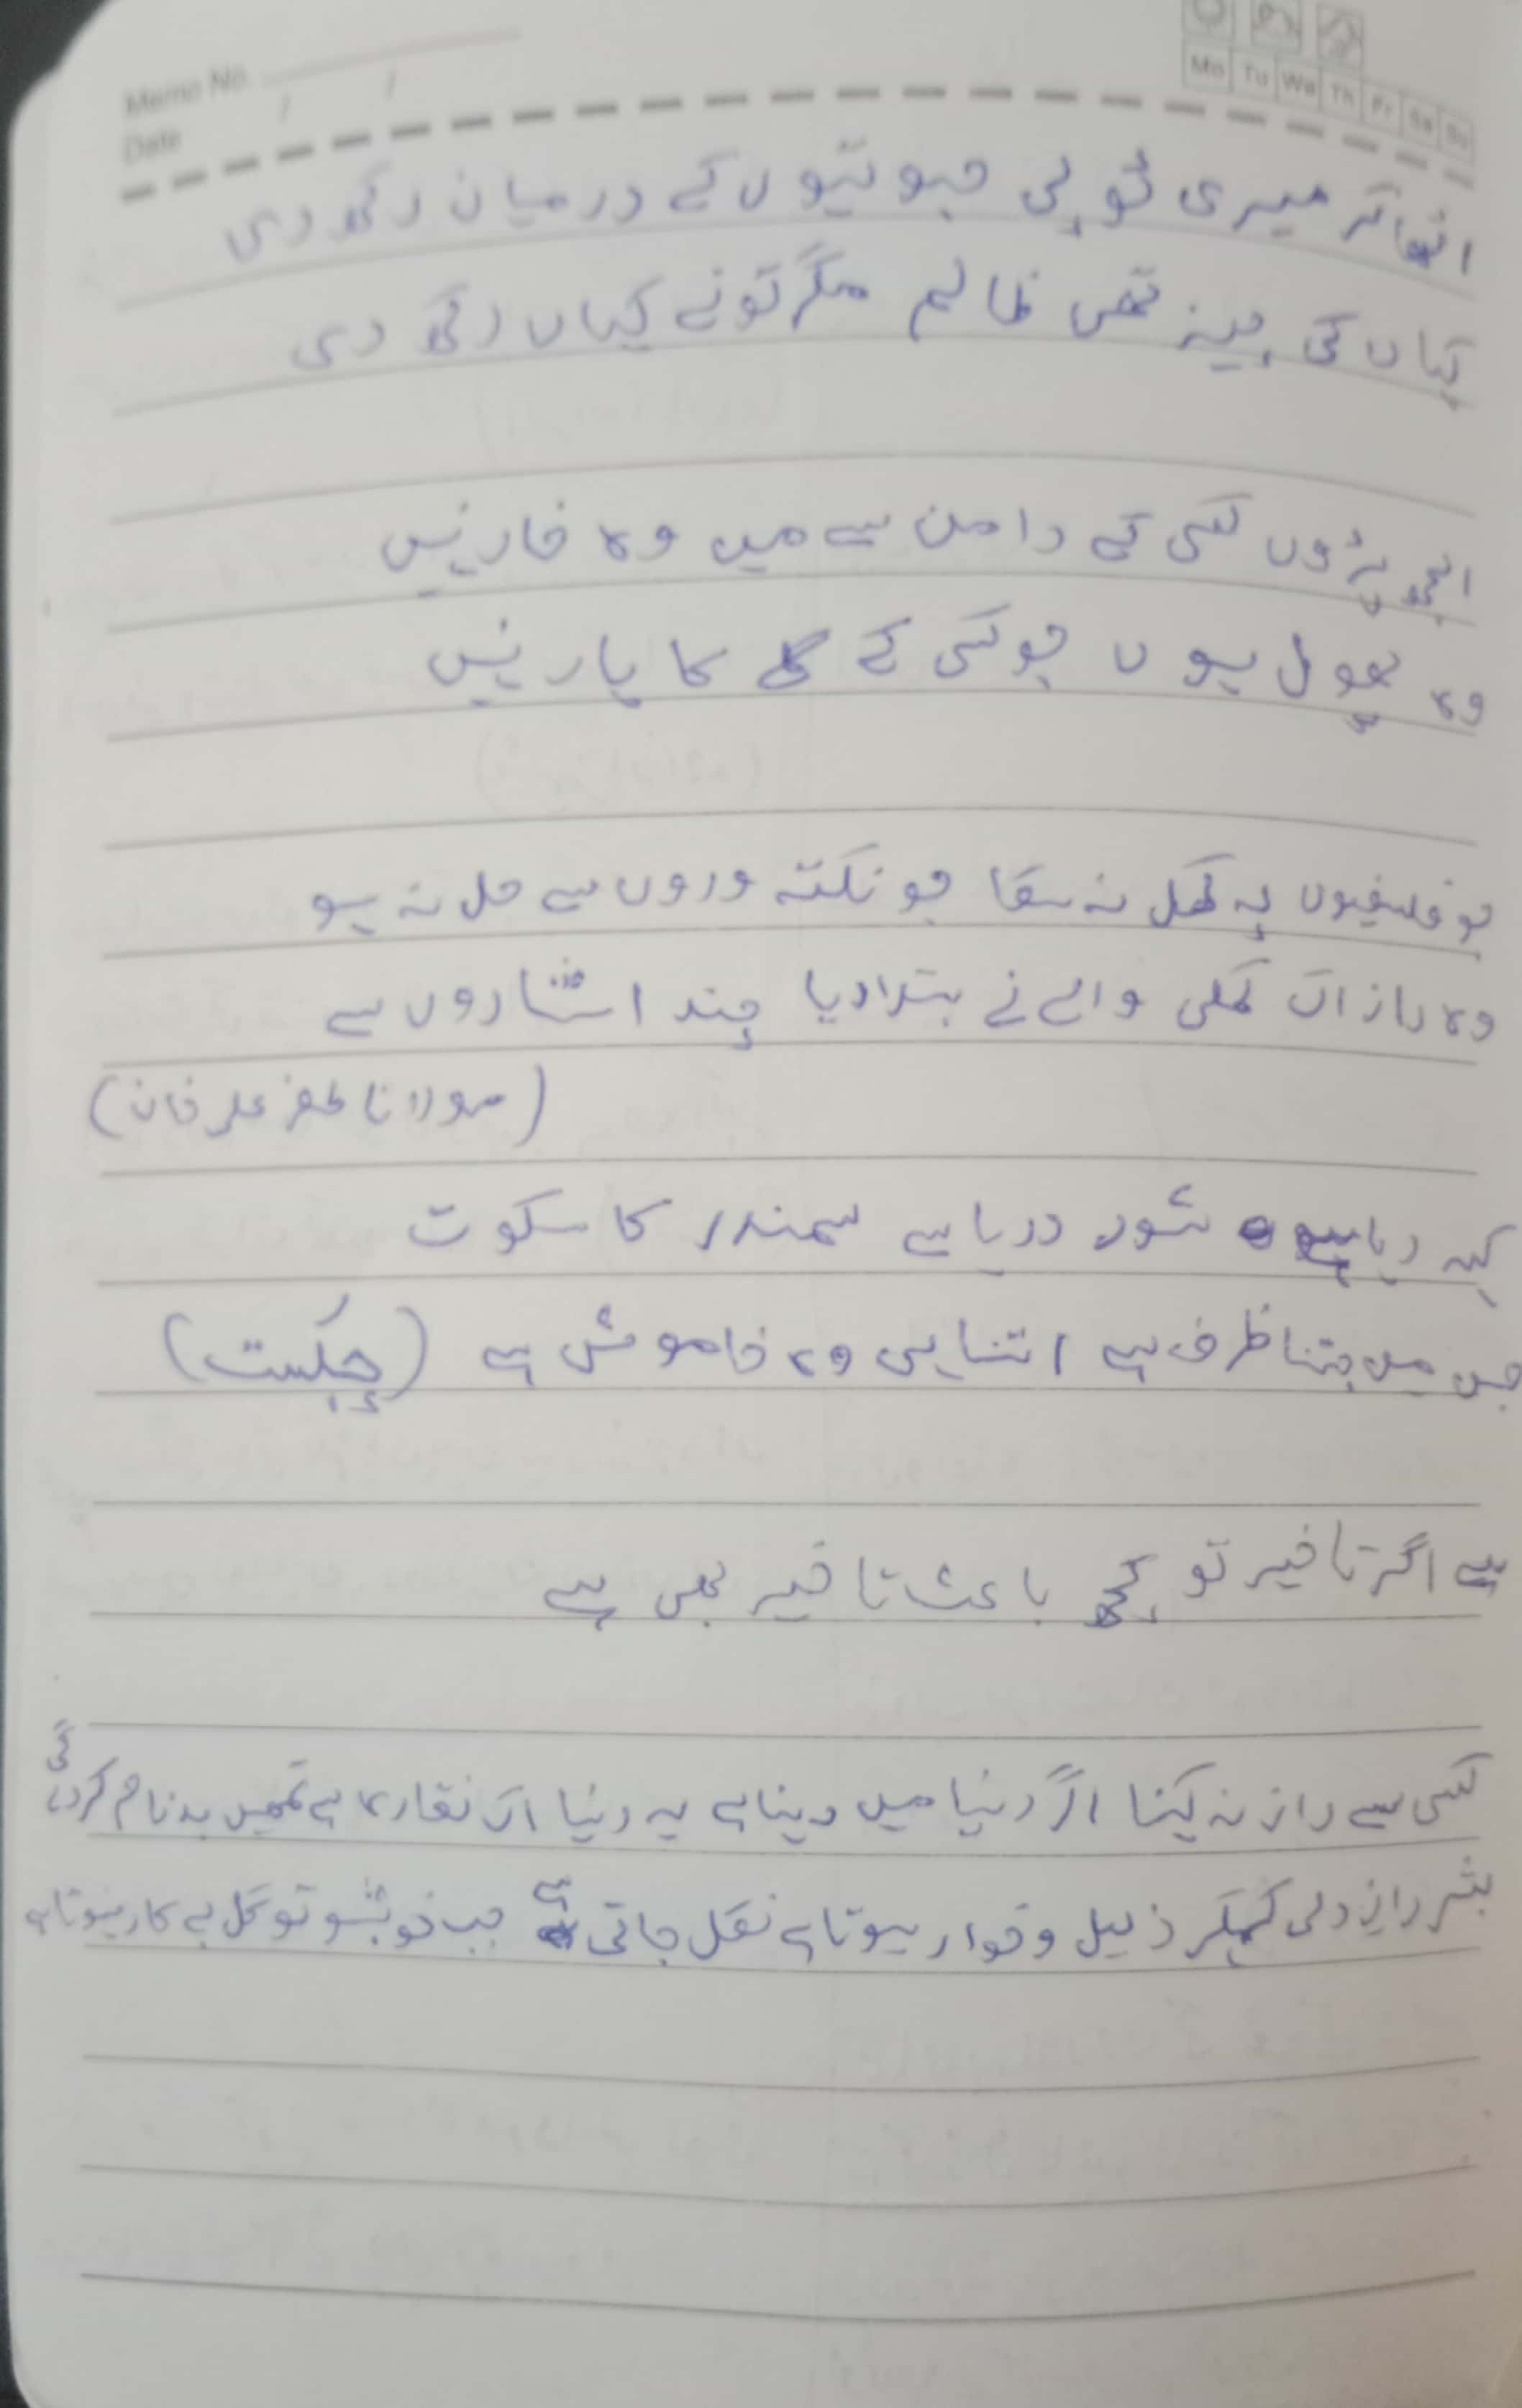 Memo No.
Date / /
Mo Tu We Th Fr Sa Su
اٹھا کر میری ٹوپی جوتیوں کے درمیان رکھ دی
کہاں کی چیز تھی ظالم مگر تونے کہاں رکھ دی
الجھ پڑوں کسی کے دامن سے میں وہ خار نہیں
وہ پھول ہوں جو کسی کے گلے کا ہار نہیں
جو فلسفیوں پہ کھل نہ سکا جو نکتہ وروں سے حل نہ ہو
وہ راز اک کملی والے نے بتلا دیا چند اشاروں سے
(مولانا ظفر علی خان)
کہہ رہا ہے شور دریا سے سمندر کا سکوت
جس میں جتنا ظرف ہے اتنا ہی وہ خاموش ہے (چکبست)
ہے اگر تاخیر تو کچھ باعث تاخیر بھی ہے
کسی سے راز نہ کہنا اگر دنیا میں رہنا ہے یہ دنیا اک نقارہ ہے تمھیں بدنام کر دے گی
بشر راز دلی کہہ کر ذلیل و خوار ہوتا ہے نکل جاتی ہے جب خوشبو تو گل بے کار ہوتا ہے